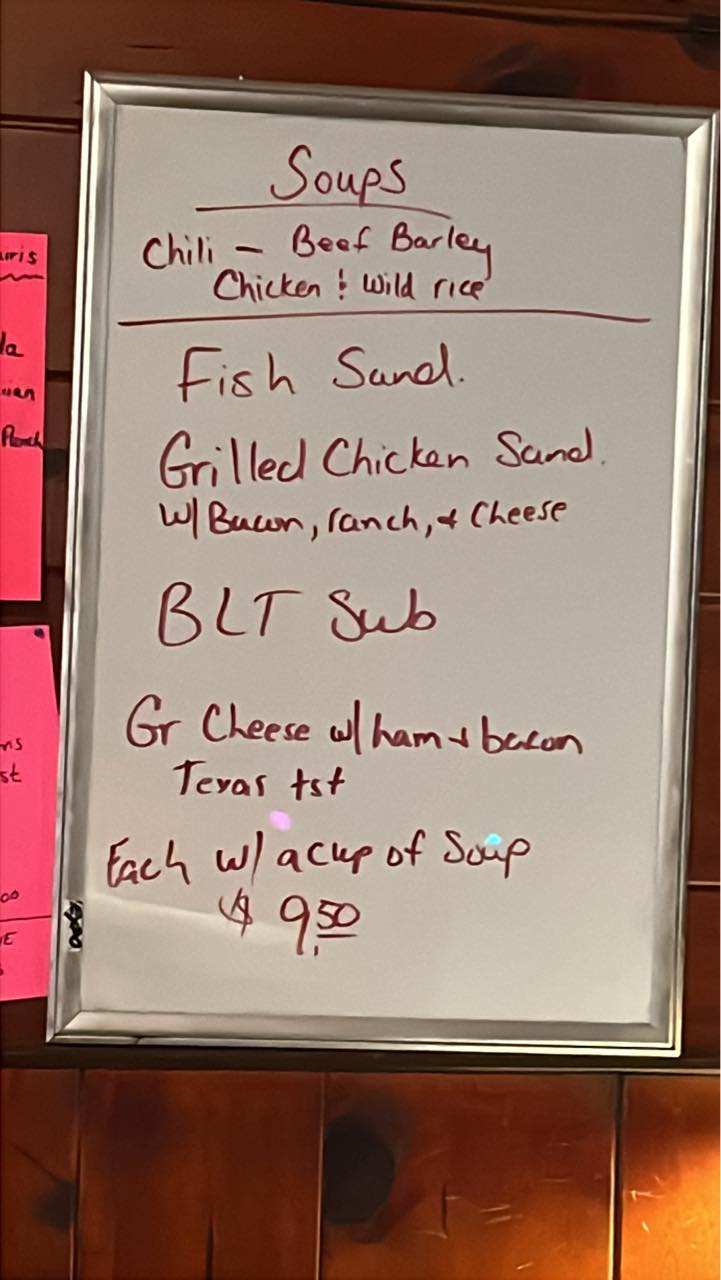 Soups
Chili - Beef Barley
Chicken & Wild rice
Fish Sand.
Grilled Chicken Sand.
w/ Bacon, ranch, & Cheese
BLT Sub
Gr Cheese w/ ham & bacon
Texas tst
Each w/ a cup of Soup
$ 9.50